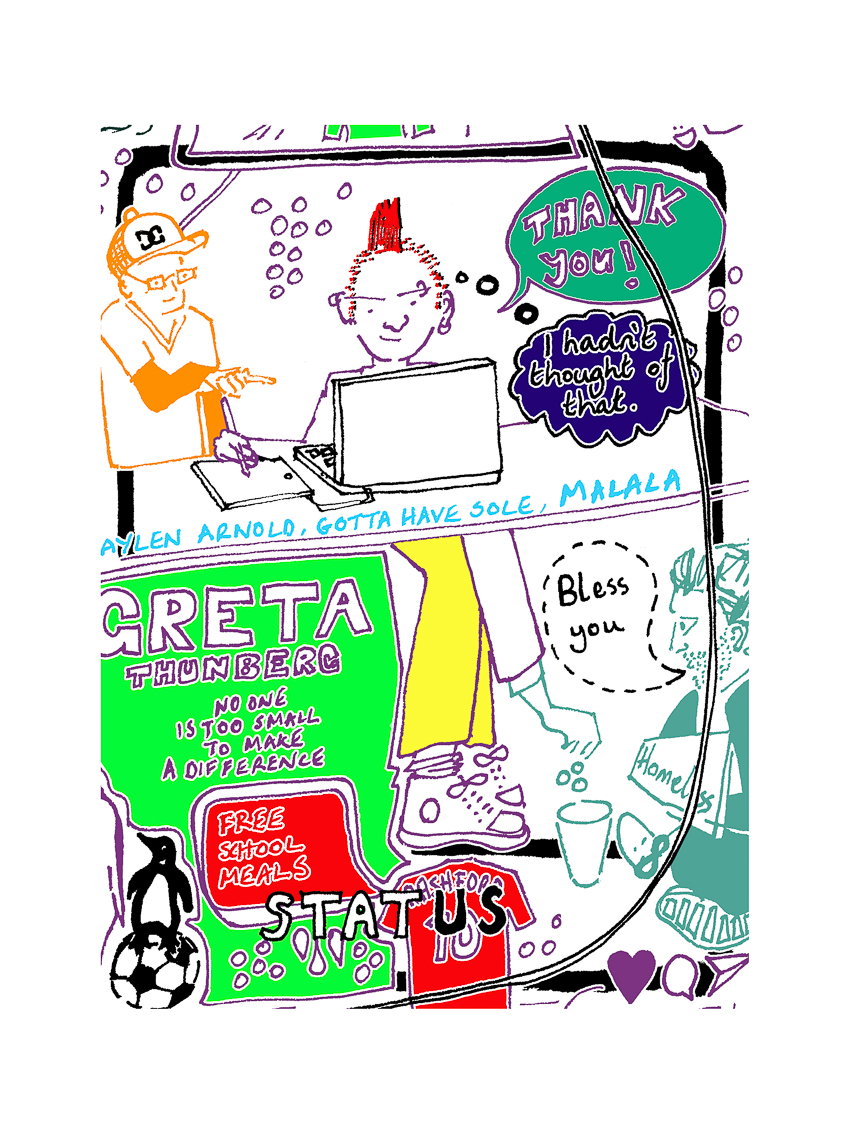 DC
THANK
you!
I hadn't
thought of
that.
AYLEN ARNOLD, GOTTA HAVE SOLE, MALALA
Bless
you
GRETA
THUNBERG
NO ONE
IS TOO SMALL
TO MAKE
A DIFFERENCE
Homeless
FREE
SCHOOL
MEALS
RASHFORD
10
STATUS